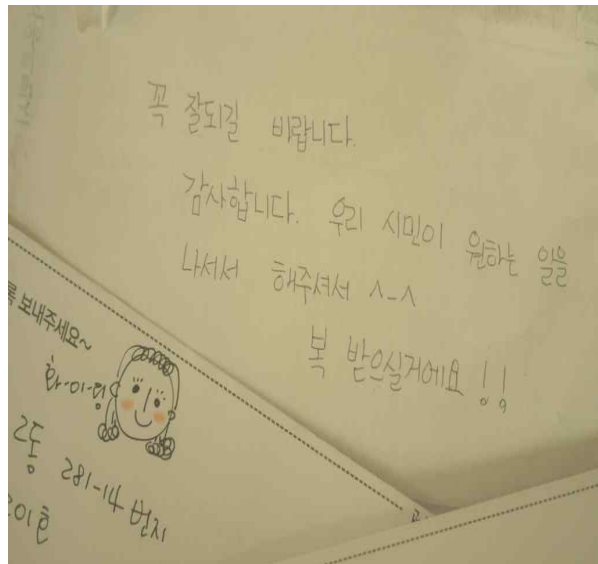 꼭 잘되길 바랍니다.
감사합니다. 우리 시민이 원하는 일을
나서서 해주셔서 ^-^
복 받으실거에요!!
보내주세요~
화-이-팅
2동 281-14 번지